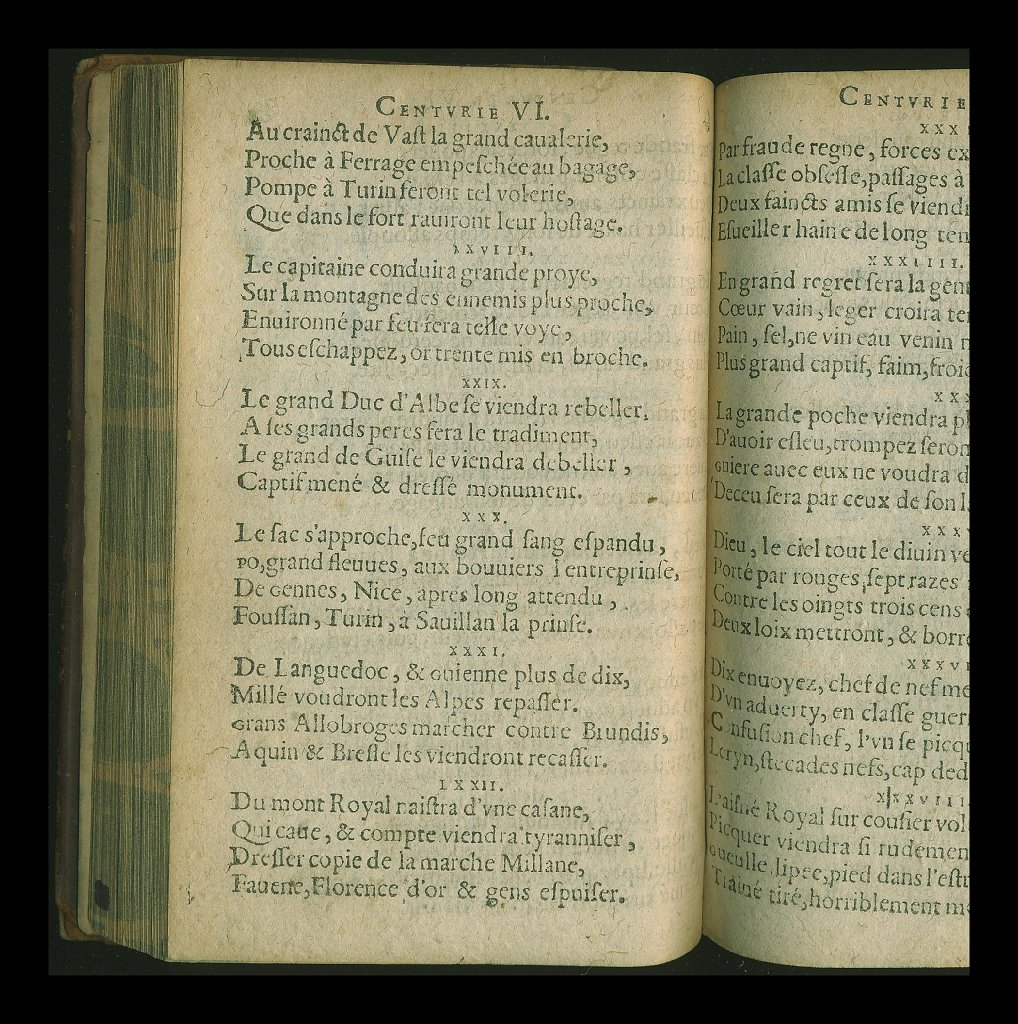 CENTVRIE VI.
Au crainct de Vast la grand caualerie,
Proche à Ferrage empeschée au bagage,
Pompe à Turin feront tel volerie,
Que dans le fort rauiront leur hostage.
XXVIII.
Le capitaine conduira grande proye,
Sur la montagne des ennemis plus proche,
Enuironné par feu fera telle voye,
Tous eschappez, or trente mis en broche.
XXIX.
Le grand Duc d'Albe se viendra rebeller,
A ses grands peres fera le tradiment,
Le grand de Guise le viendra debeller,
Captif mené & dressé monument.
XXX.
Le sac s'approche, feu grand sang espandu,
PO, grand fleuues, aux bouuiers l'entreprinse,
De Gennes, Nice, apres long attendu,
Foussan, Turin, à Sauillan la prinse.
XXXI.
De Languedoc, & Guienne plus de dix,
Mille voudront les Alpes repasser.
Grans Allobroges marcher contre Brundis,
Aquin & Bresse les viendront recasser.
LXXII.
Du mont Royal naistra d'vne casane,
Qui caue, & compte viendra tyranniser,
Dresser copie de la marche Millane,
Fauene, Florence d'or & gens espuiser.
CENTVRIE
XXX
Par fraude regne, forces ex
La classe obsesse, passages à
Deux faincts amis se viend
Esueiller haine de long ten
XXXIIII.
En grand regret sera la gen
Cœur vain, leger croira te
Pain, sel, ne vin eau venin
Plus grand captif, faim, froi
XX
La grande poche viendra pl
D'auoir esleu, trompez seron
Guiere auec eux ne voudra d
Deceu sera par ceux de son l
XXX
Dieu, le ciel tout le diuin ve
Porté par rouges, sept razes
Contre les oingts trois cens
Deux loix mettront, & borr
XXXV
Dix enuoyez, chef de nef me
D'vn aduerty, en classe guer
Confusion chef, l'vn se picq
Leryn, stecades nefs, cap ded
XXXVIII
L'aisné Royal sur coursier vol
Picquer viendra si rudemen
Gueulle, lipee, pied dans l'est
Trainé tiré, horriblement m